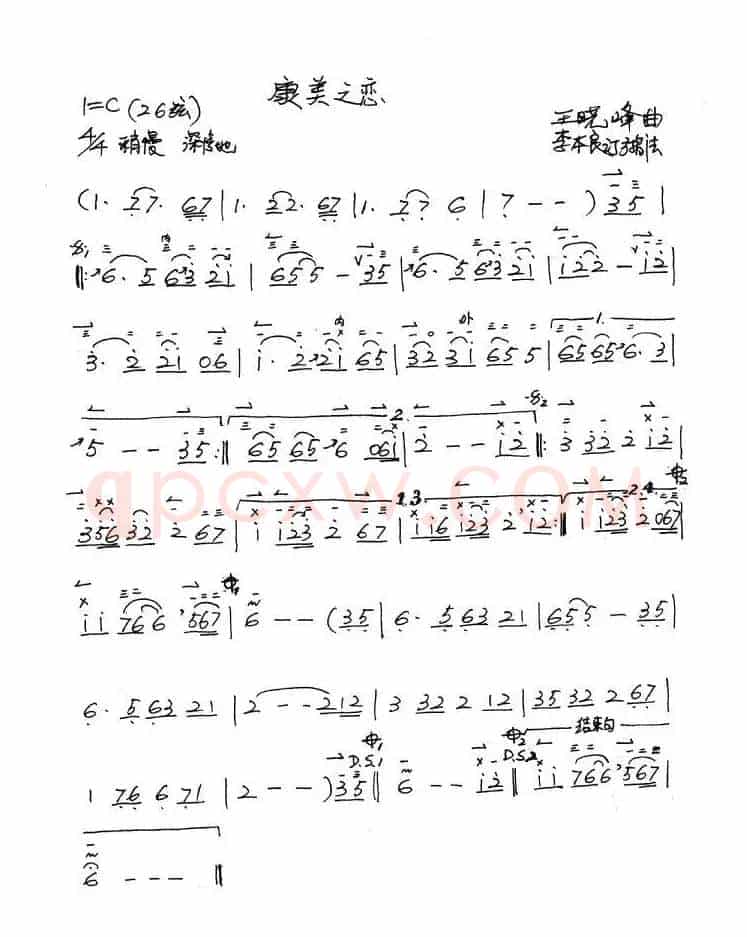 康美之恋
1=C (26弦)
4/4 稍慢 深情地
王晓峰曲
李本良订弓指法
(1· 27· 67 | 1· 22· 67 | 1· 27 6 | 7 - - ) 35 |
𝄋1 ‖: 6· 5 63 2i | 655 - 35 | 6· 5 63 2i | i22 - i2 |
3· 2 2i 06 | i· 2 2i 65 | 32 3i 65 5 | 1. 65 65 6· 3 |
5 - - 35 :‖ 2. 65 65 6 06i | 2 - - i2 𝄋2 ‖: 3 32 2 i2 |
356 32 2 67 | i i23 2 67 | 1.3. i i6 i23 2 i2 :‖ 2.4. i i23 2 067 |
i i 766 567 | 6 - - (35 | 6· 5 63 21 | 655 - 35 |
6· 5 63 21 | 2 - - 212 | 3 32 2 12 | 35 32 2 67 |
1 76 6 71 | 2 - - ) 35 D.S.1 ‖ 6 - - i2 D.S.2 ‖ 结束句 i i 766 567 |
6 - - - ‖
qpcxw.com